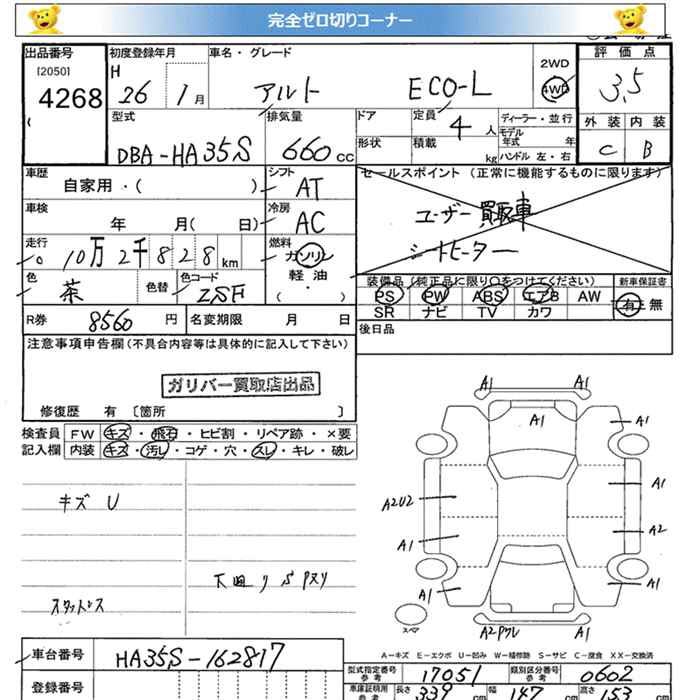 完全ゼロ切りコーナー
出品番号 初度登録年月 車名・グレード 2WD 評価点
[2050] H 26 1月 アルト ECO-L 4WD 3.5
4268
型式 排気量 ドア 定員 4人 ディーラー・並行 外装 内装
DBA-HA35S 660cc 形状 積載 kg モデル年式 年 C B
ハンドル 左・右
車歴 シフト セールスポイント (正常に機能するものに限ります)
自家用・( ) AT
車検 冷房 ユーザー買取車
年 月( 日) AC シートヒーター
走行 燃料
10万2千828km ガソリン
色 色替 色コード 軽油 装備品 (純正品に限り○をつけてください) 新車保証書
茶 ZSF ( ・ ) PS PW ABS エアB AW 有・無
R券 8560円 名変期限 月 日 SR ナビ TV カワ
注意事項申告欄(不具合内容等は具体的に記入して下さい) 後日品
ガリバー買取店出品
修復歴 有 〔箇所 〕
検査員 FW キズ・飛石・ヒビ割・リペア跡・×要
記入欄 内装 キズ・汚レ・コゲ・穴・スレ・キレ・破レ
キズ U
スタットレス
A1 A1
A1
A1
A1
A2U2
A2
A1
A1 A1
スペア
A2
A-キズ E-エクボ U-凹み W-補修跡 S-サビ C-腐食 XX-交換済
車台番号 HA35S-162817
型式指定番号 参考 17051 類別区分番号 参考 0602
登録番号
車庫証明用 参考 長さ 339 cm 幅 147 cm 高さ 153 cm